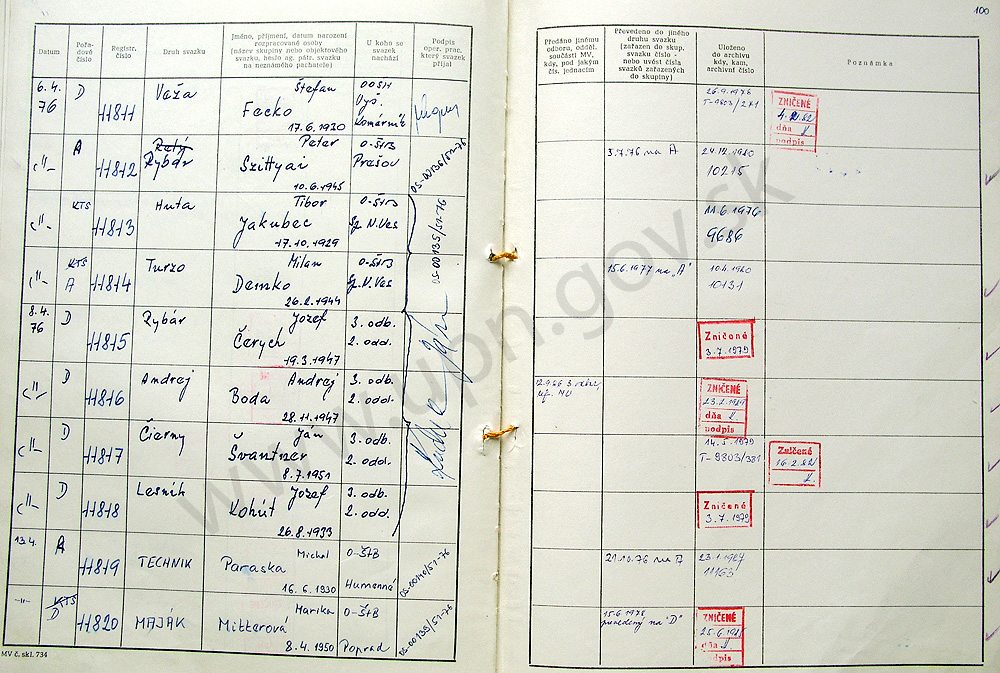 100
Datum
Pořa-
dové
číslo
Registr.
číslo
Druh svazku
Jméno, příjmení, datum narození
rozpracované osoby
(název skupiny nebo objektového
svazku, heslo ag. pátr. svazku
na neznámého pachatele)
U koho se
svazek
nachází
Podpis
oper. prac.
který svazek
přijal
Předáno jinému
odboru, odděl.
součásti MV,
kdy, pod jakým
čís. jednacím
Převedeno do jiného
druhu svazku
(zařazen do skup.
svazku číslo -
nebo uvést čísla
svazků zařazených
do skupiny)
Uloženo
do archivu
kdy, kam,
archivní číslo
Poznámka
6.4.
76
D
11811
Važa
Štefan
Fecko
17.6.1930
OOŠH
Vyš.
Komárnik
26.9.1978
T-9803/271
ZNIČENÉ
dňa
podpis
-"-
A
11812
Rybár
Peter
Szittyai
10.6.1945
O-ŠtB
Prešov
OS-00136/51-76
3.7.76 na A
24.12.1980
10215
-"-
KTS
11813
Huta
Tibor
Jakubec
17.10.1929
O-ŠtB
Sp. N. Ves
OS-00135/51-76
11.6.1976
9686
-"-
KTS
A
11814
Turzo
Milan
Demko
26.2.1944
O-ŠtB
Sp. N. Ves
15.6.1977 na "A"
10.4.1980
10131
8.4.
76
D
11815
Rybár
Jozef
Čerych
19.3.1947
3. odb.
2. odd.
Zničené
3.7.1979
-"-
D
11816
Andrej
Andrej
Boda
28.11.1947
3. odb.
2. odd.
ZNIČENÉ
dňa
podpis
-"-
D
11817
Čierny
Ján
Švantner
8.7.1951
3. odb.
2. odd.
14.5.1979
T-9803/381
Zničené
16.2.82
-"-
D
11818
Lesník
Jozef
Kohút
26.8.1933
3. odb.
2. odd.
Zničené
3.7.1979
13.4.
A
11819
TECHNIK
Michal
Paraska
16.6.1930
O-ŠtB
Humenné
OS-00140/51-76
21.10.76 na A
23.1.1987
11163
-"-
KTS
D
11820
MAJÁK
Marika
Mitterová
8.4.1950
O-ŠtB
Poprad
OS-00139/51-76
15.6.1978
prevedený na "D"
ZNIČENÉ
dňa
podpis
MV č. skl. 734
www.upn.gov.sk